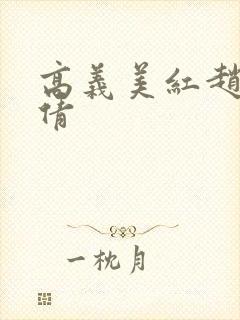 高義美紅趙
倩
一枕月